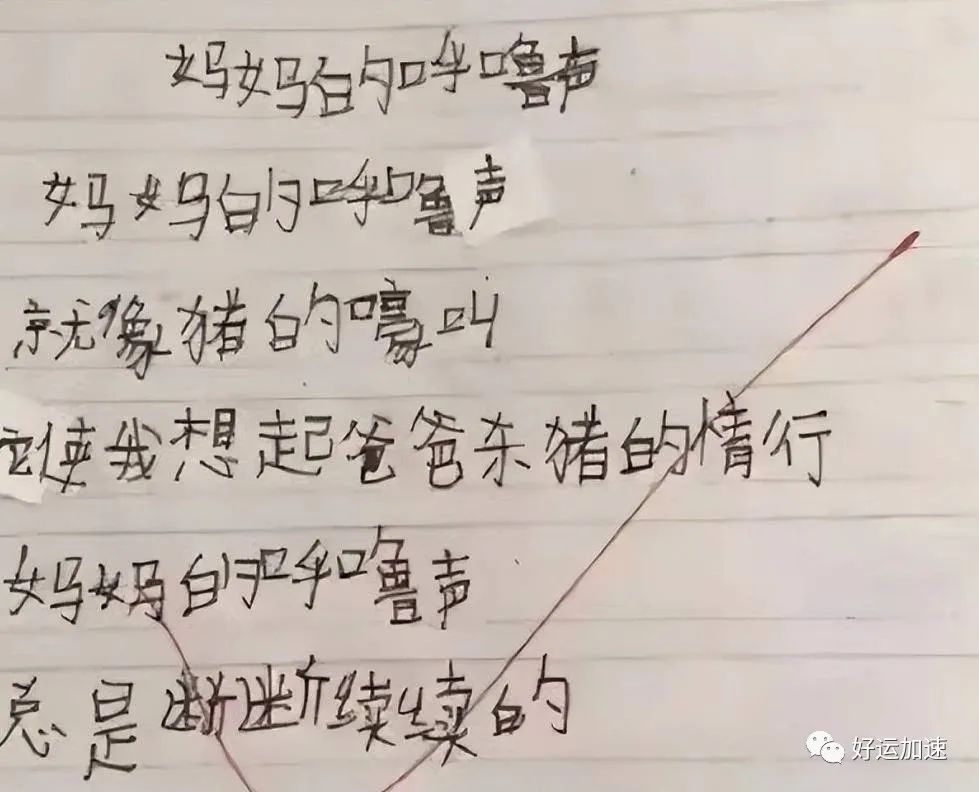 妈妈的呼噜声
妈妈的呼噜声
就像猪的嚎叫
它使我想起爸爸杀猪的情行
妈妈的呼噜声
总是断断续续的
好运加速